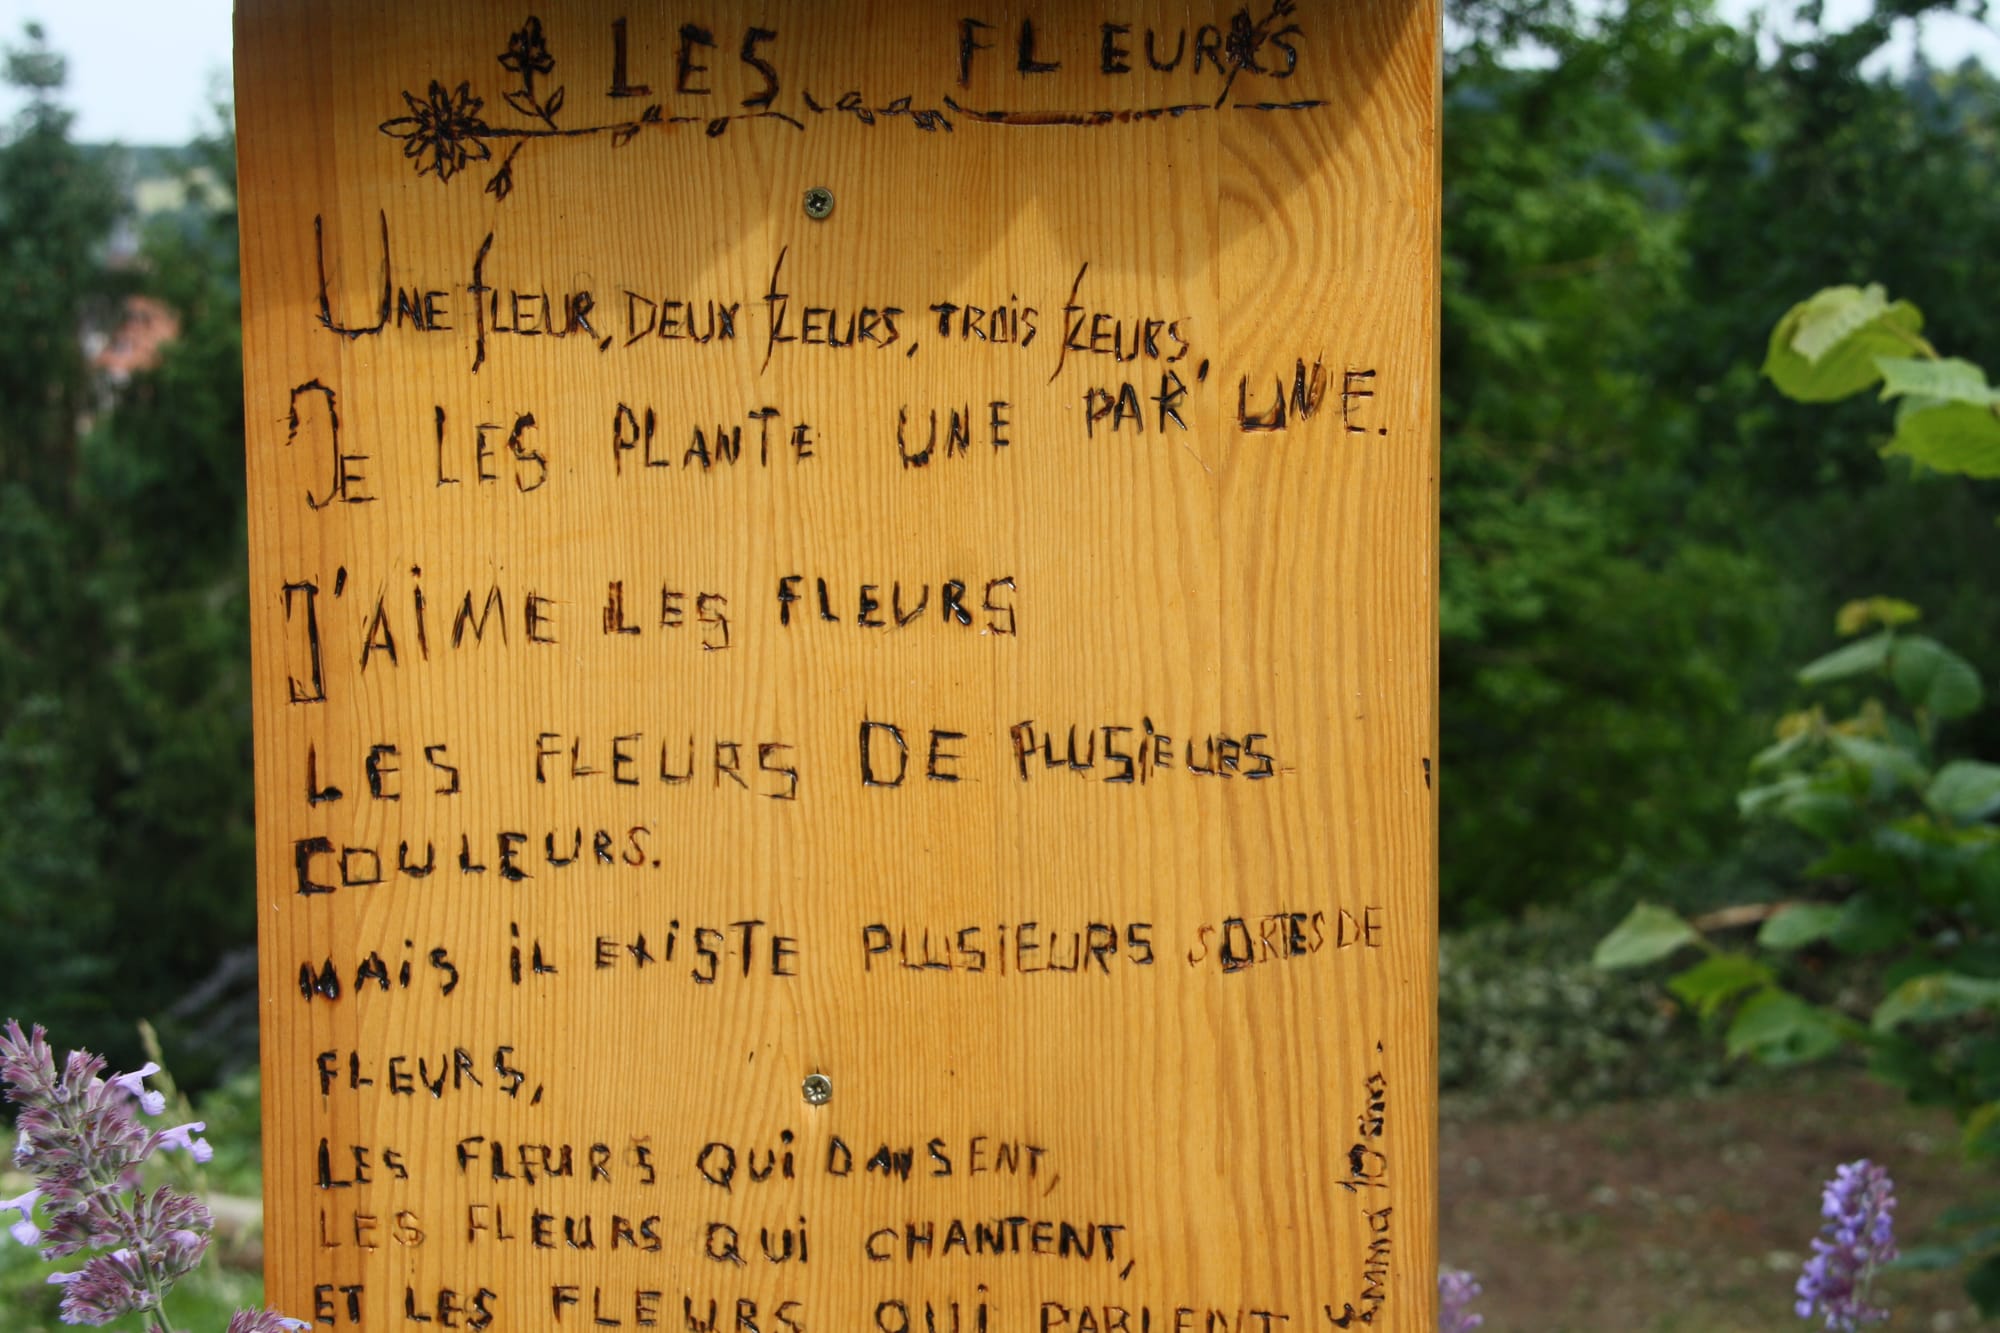 LES FLEURS
UNE fLEUR, DEUX fLEURS, TROiS fLEURS,
JE LES PLANTE UNE PAR' UNE.
J'AiME LES FLEURS
LES FLEURS DE PLUSiEURS
COULEURS.
MAiS iL EXiSTE PLUSiEURS SORTES DE
FLEURS,
LES FLEURS QUi DANSENT,
LES FLEURS QUi CHANTENT,
ET LES FLEURS QUi PARLENT
Emma 10 ans.